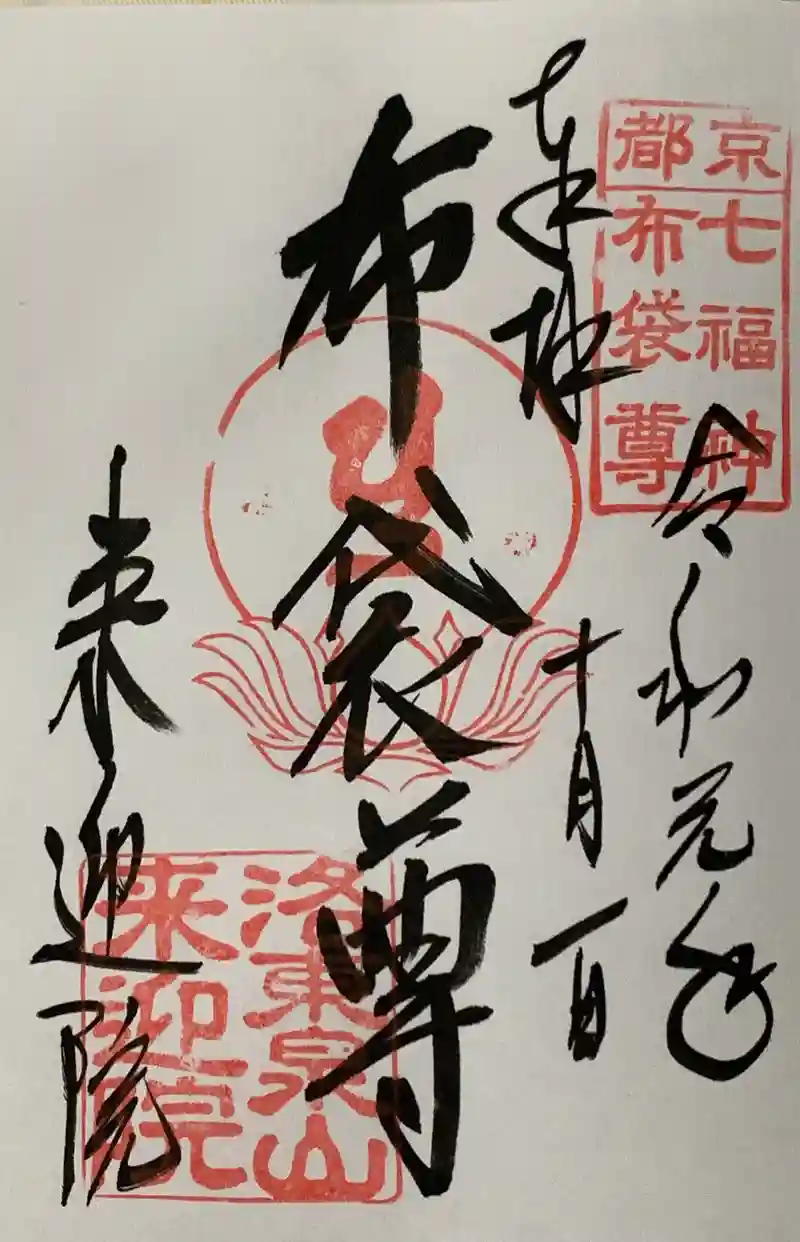 京都
七福神
布袋尊
奉拝
令和元年
十月一日
布袋尊
洛東泉山
来迎院
来迎院